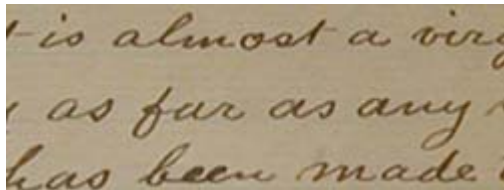 is almost a
as far as any
has been made